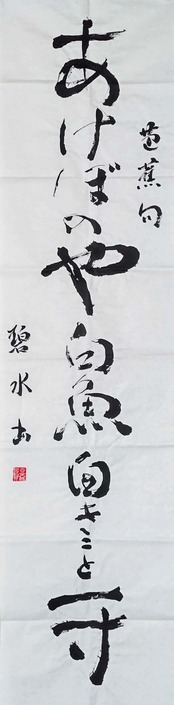 芭蕉句
あけぼのや白魚白きこと一寸
碧水書